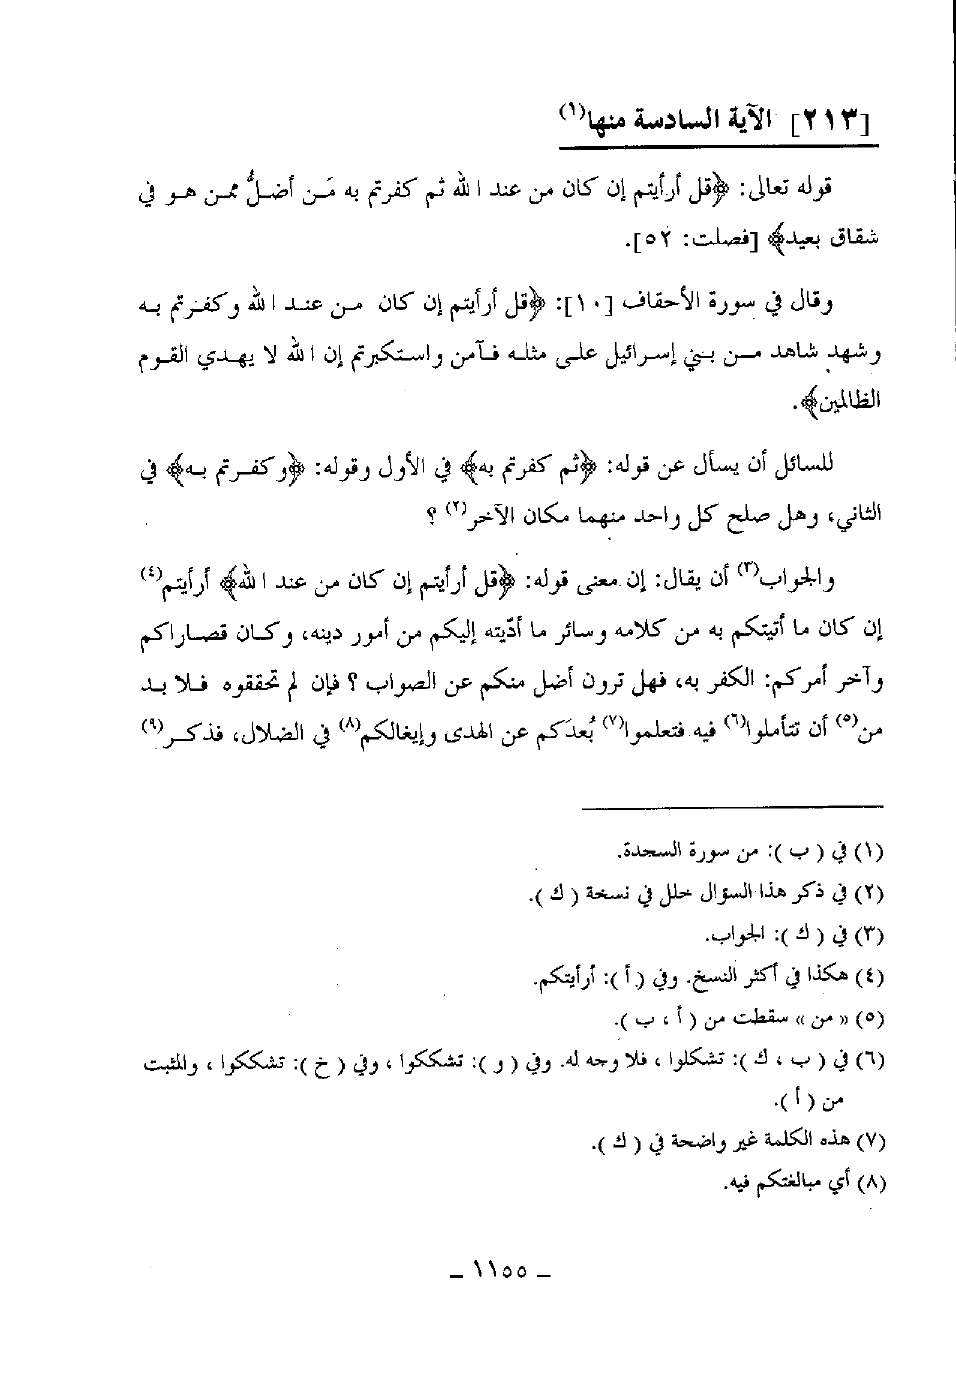 [٢١٣] الآية السادسة منها(١)
قوله تعالى: ﴿قل أرأيتم إن كان من عند الله ثم كفرتم به مَن أضلُّ ممن هو في
شقاق بعيد﴾ [فصلت: ٥٢].
وقال في سورة الأحقاف [١٠]: ﴿قل أرأيتم إن كان من عند الله وكفرتم به
وشهد شاهد من بني إسرائيل على مثله فآمن واستكبرتم إن الله لا يهدي القوم
الظالمين﴾.
للسائل أن يسأل عن قوله: ﴿ثم كفرتم به﴾ في الأول وقوله: ﴿وكفرتم به﴾ في
الثاني، وهل صلح كل واحد منهما مكان الآخر(٢) ؟
والجواب(٣) أن يقال: إن معنى قوله: ﴿قل أرأيتم إن كان من عند الله﴾ أرأيتم(٤)
إن كان ما أتيتكم به من كلامه وسائر ما أدّيته إليكم من أمور دينه، وكان قصاراكم
وآخر أمركم: الكفر به، فهل ترون أضل منكم عن الصواب ؟ فإن لم تحققوه فلا بد
من(٥) أن تتأملوا(٦) فيه فتعلموا(٧) بُعدَكم عن الهدى وإيغالكم(٨) في الضلال، فذكر(٩)
(١) في ( ب ): من سورة السجدة.
(٢) في ذكر هذا السؤال خلل في نسخة ( ك ).
(٣) في ( ك ): الجواب.
(٤) هكذا في أكثر النسخ. وفي ( أ ): أرأيتكم.
(٥) « من » سقطت من ( أ ، ب ).
(٦) في ( ب ، ك ): تشكلوا ، فلا وجه له. وفي ( و ): تشككوا ، وفي ( خ ): تشككوا ، والمثبت
من ( أ ).
(٧) هذه الكلمة غير واضحة في ( ك ).
(٨) أي مبالغتكم فيه.
ـ ١١٥٥ ـ